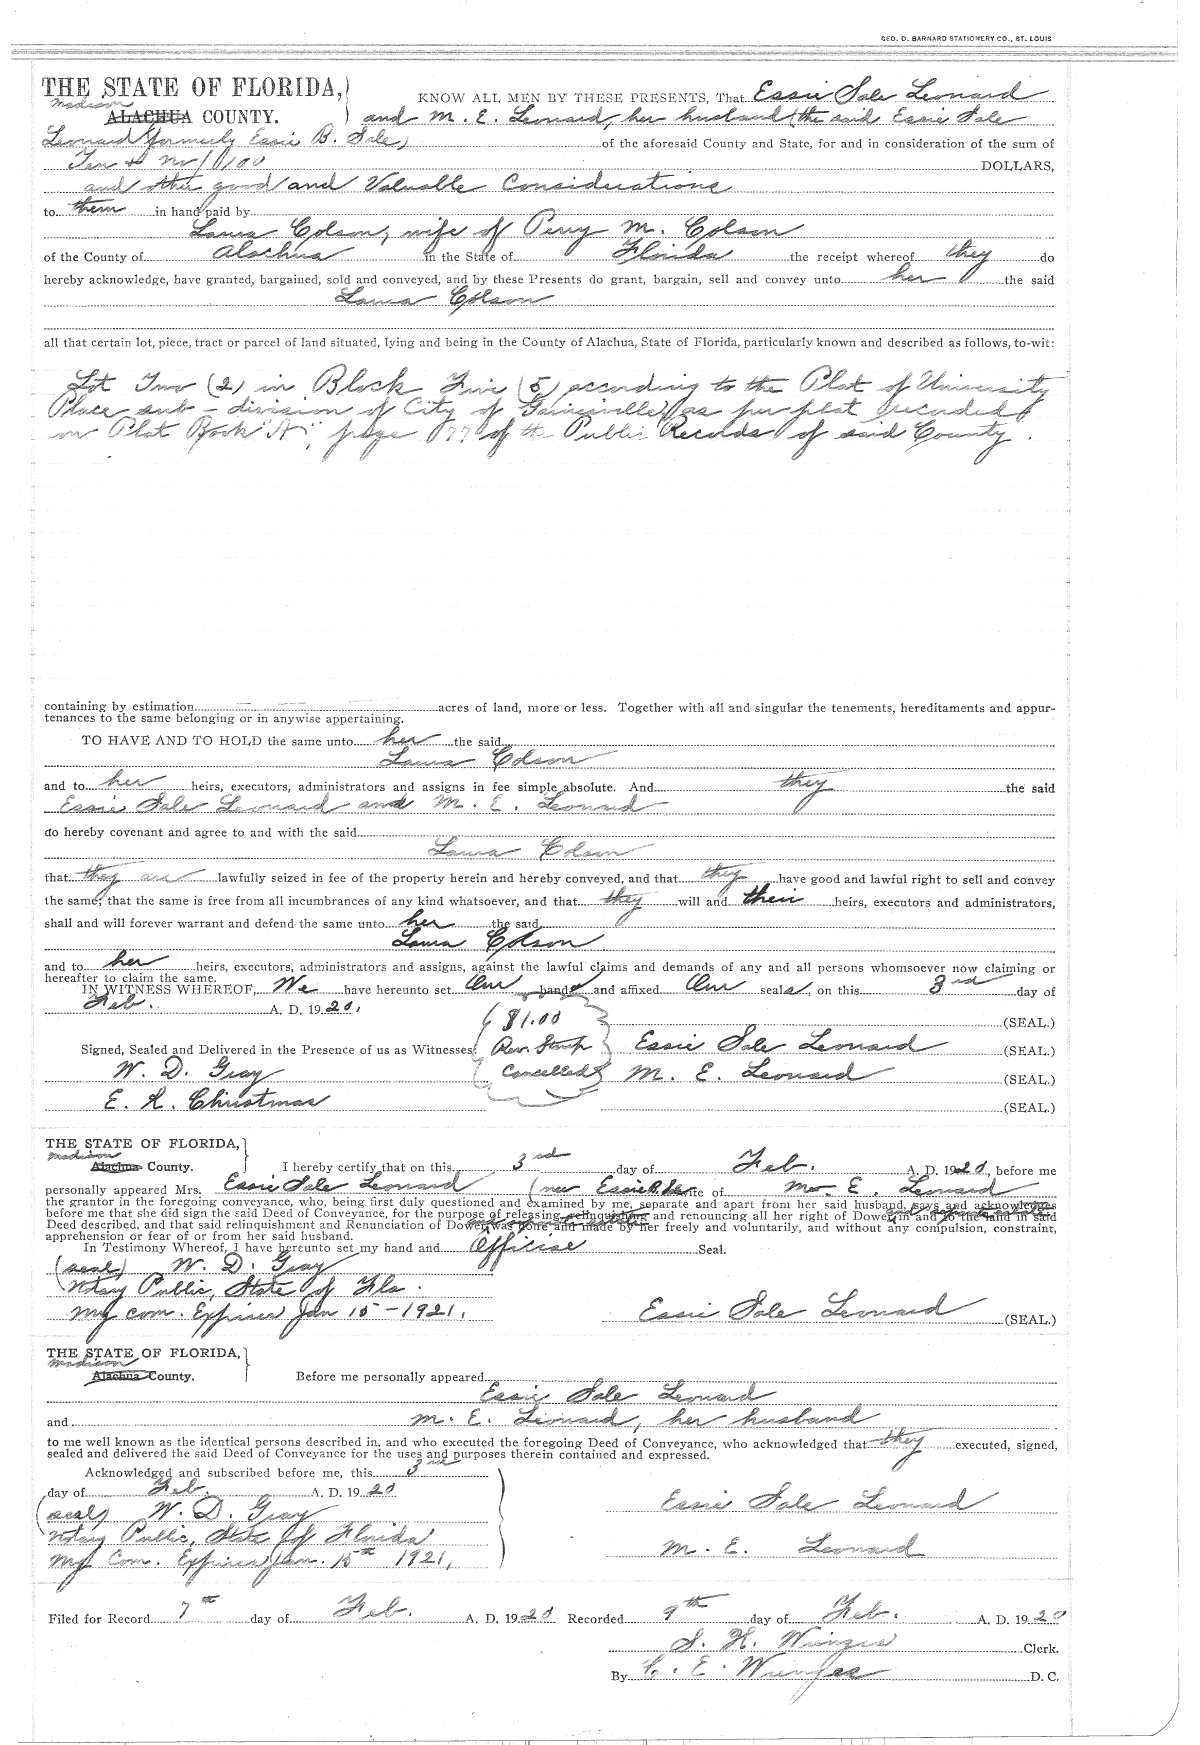 GEO. D. BARNARD STATIONERY CO., ST. LOUIS
THE STATE OF FLORIDA,
Madison
ALACHUA COUNTY.
KNOW ALL MEN BY THESE PRESENTS, That Essie Sale Leonard
and M. E. Leonard, her husband (the said Essie Sale
Leonard formerly Essie B. Sale) of the aforesaid County and State, for and in consideration of the sum of
Ten & no/100 DOLLARS,
and other good and Valuable Considerations
to them in hand paid by
Laura Colson, wife of Perry M. Colson
of the County of Alachua in the State of Florida the receipt whereof they do
hereby acknowledge, have granted, bargained, sold and conveyed, and by these Presents do grant, bargain, sell and convey unto her the said
Laura Colson
all that certain lot, piece, tract or parcel of land situated, lying and being in the County of Alachua, State of Florida, particularly known and described as follows, to-wit:
Lot Two (2) in Block Five (5) according to the Plat of University
Place sub-division of City of Gainesville, as per plat recorded
on Plat Book "A", page 77 of the Public Records of said County.
containing by estimation acres of land, more or less. Together with all and singular the tenements, hereditaments and appur-
tenances to the same belonging or in anywise appertaining.
TO HAVE AND TO HOLD the same unto her the said
Laura Colson
and to her heirs, executors, administrators and assigns in fee simple absolute. And they the said
Essie Sale Leonard and M. E. Leonard
do hereby covenant and agree to and with the said
Laura Colson
that they are lawfully seized in fee of the property herein and hereby conveyed, and that they have good and lawful right to sell and convey
the same; that the same is free from all incumbrances of any kind whatsoever, and that they will and their heirs, executors and administrators,
shall and will forever warrant and defend the same unto her the said
Laura Colson
and to her heirs, executors, administrators and assigns, against the lawful claims and demands of any and all persons whomsoever now claiming or
hereafter to claim the same.
IN WITNESS WHEREOF, We have hereunto set Our hands and affixed Our seals, on this 3rd day of
Feb. A. D. 1920,
$1.00 (SEAL.)
Signed, Sealed and Delivered in the Presence of us as Witnesses: Rev. Stamp Essie Sale Leonard (SEAL.)
W. D. Gray Cancelled M. E. Leonard (SEAL.)
E. R. Christmas (SEAL.)
THE STATE OF FLORIDA,
Madison
Alachua County. I hereby certify that on this 3rd day of Feb. A. D. 1920, before me
personally appeared Mrs. Essie Sale Leonard (nee Essie B. Sale wife of M. E. Leonard
the grantor in the foregoing conveyance, who, being first duly questioned and examined by me, separate and apart from her said husband, says and acknowledges
before me that she did sign the said Deed of Conveyance, for the purpose of releasing, relinquishing and renouncing all her right of Dower in and to the land in said
Deed described, and that said relinquishment and Renunciation of Dower was done and made by her freely and voluntarily, and without any compulsion, constraint,
apprehension or fear of or from her said husband.
In Testimony Whereof, I have hereunto set my hand and Official Seal.
(seal) W. D. Gray
Notary Public, State of Fla.
My com. Expires Jan 15-1921. Essie Sale Leonard (SEAL.)
THE STATE OF FLORIDA,
Madison
Alachua County. Before me personally appeared
Essie Sale Leonard
and M. E. Leonard, her husband
to me well known as the identical persons described in, and who executed the foregoing Deed of Conveyance, who acknowledged that they executed, signed,
sealed and delivered the said Deed of Conveyance for the uses and purposes therein contained and expressed.
Acknowledged and subscribed before me, this 3rd
day of Feb. A. D. 1920
(seal) W. D. Gray Essie Sale Leonard
Notary Public, State of Florida
My Com. Expires Jan. 15th 1921. M. E. Leonard
Filed for Record 7th day of Feb. A. D. 1920 Recorded 9th day of Feb. A. D. 1920
S. H. Wienges Clerk.
By C. E. Wienges D. C.